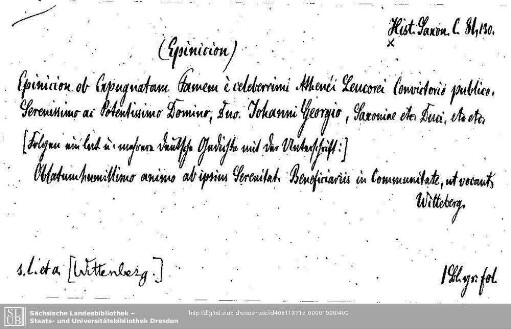 Hist. Saxon. C. 81,130.
(Epinicion)
Epinicion ob Expugnatam Famem è celeberrimi Athenëi Leucorei Convictorio publico.
Serenissimo ac Potentissimo Domino, Dno. Johanni Georgio, Saxoniae etc. Duci, etc etc.
[Folgen ein lat. u. mehrere deutsche Gedichte mit der Unterschrift:]
Oblatum humillimo animo ab ipsius Serenitat. Beneficiariis in Communitate, ut vocant,
Witteberg.
s. l. et a [Wittenberg.]
fol.
SLUB
Sächsische Landesbibliothek –
Staats- und Universitätsbibliothek Dresden